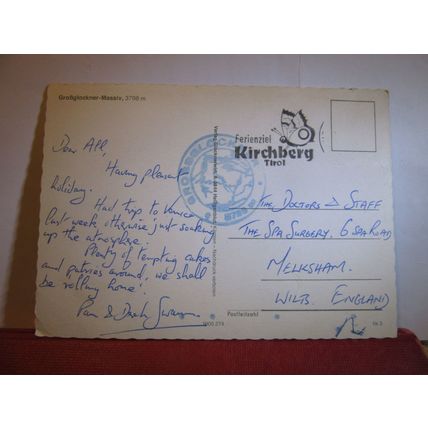 Großglockner-Massiv, 3798 m
Dear All,
Having pleasant
holiday.
Had trip to Venice
last week, otherwise just soaking
up the atmosphere.
Plenty of tempting cakes
and pastries around, we shall
be rolling home!
Pam &
Ferienziel
Kirchberg
Tirol
THE DOCTORS & STAFF
THE SPA SURGERY, 6 SPA ROAD
MELKSHAM.
WILTS. ENGLAND
Postleitzahl